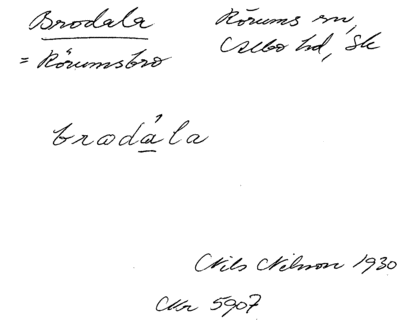 Brodala
= Rörumsbro
Rörums sn,
Albo hd, Sk
brodala
Nils Nilsson 1930
Nr 5907